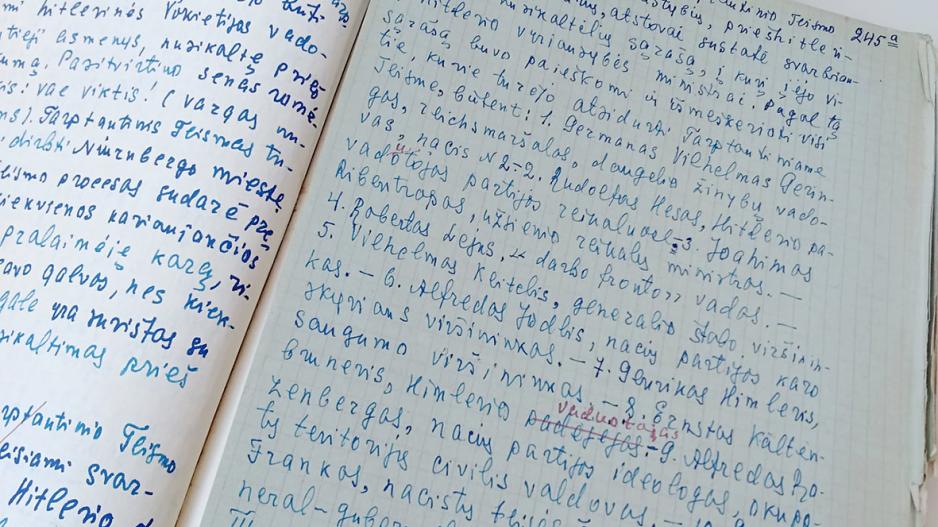 mi hitlerinės Vokietijos vado-
tieji asmenys, nusikaltę prieš
umą. Pasitvirtino senas romė-
is: vae viktis! (vargas nu-
ns). Tarptautinis Teismas tu-
dirbti Niurnbergo mieste.
ismo procesas sudarė pre-
iekvienos kariaujančios
pralaimėję karą, ri-
avo galvos, nes kiek-
gale yra surištas su
sikaltimas prieš
arptautinio Teismo
eisiami svar-
Hitlerio d
Teismo 245ª
atstovai sustatė svarbiau-
nusikaltėlių sąrašą, į kurį įėjo vi-
Hitlerio vyriausybės ministrai. Pagal tą
sąrašą buvo paieškomi ir išmeškerioti visi
tie, kurie turėjo atsidurti Tarptautiniame
Teisme, būtent: 1. Germanas Vilhelmas Gerin-
gas, reichsmaršalas, daugelio žinybų vado-
vas, nacis N2. – 2. Rudolfas Hesas, Hitlerio pa-
vaduotojas partijos reikaluose – 3. Joahimas
Ribentropas, užsienio reikalų ministras. –
4. Robertas Lejus, „darbo fronto" vadas. –
5. Vilhelmas Keitelis, generalio štabo viršinin-
kas. – 6. Alfredas Jodlis, nacių partijos karo
skyriaus viršininkas. – 7. Genrikas Himleris,
saugumo viršininkas – 8. Ernstas Kalten-
bruneris, Himlerio padėjėjas vaduotojas – 9. Alfredas Ro-
zenbergas, nacių partijos ideologas, okupo-
tų teritorijų civilis valdovas. – 10.
Frankas, nacistų teisės
neral-guber